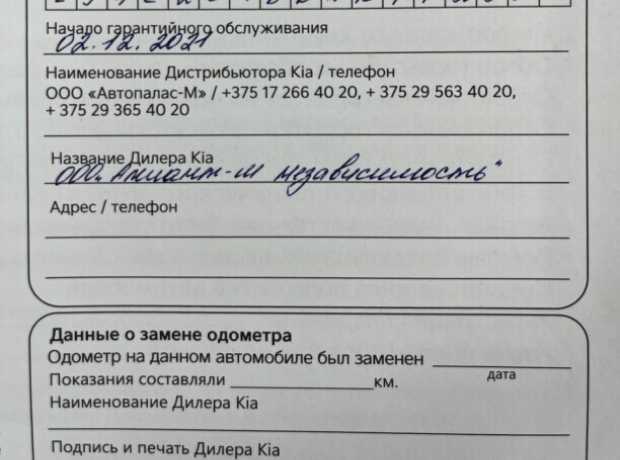 Начало гарантийного обслуживания
02.12.2021
Наименование Дистрибьютора Kia / телефон
ООО «Автопалас-М» / +375 17 266 40 20, + 375 29 563 40 20,
+ 375 29 365 40 20
Название Дилера Kia
ООО „Атлант-м независимость"
Адрес / телефон
Данные о замене одометра
Одометр на данном автомобиле был заменен
дата
Показания составляли км.
Наименование Дилера Kia
Подпись и печать Дилера Kia